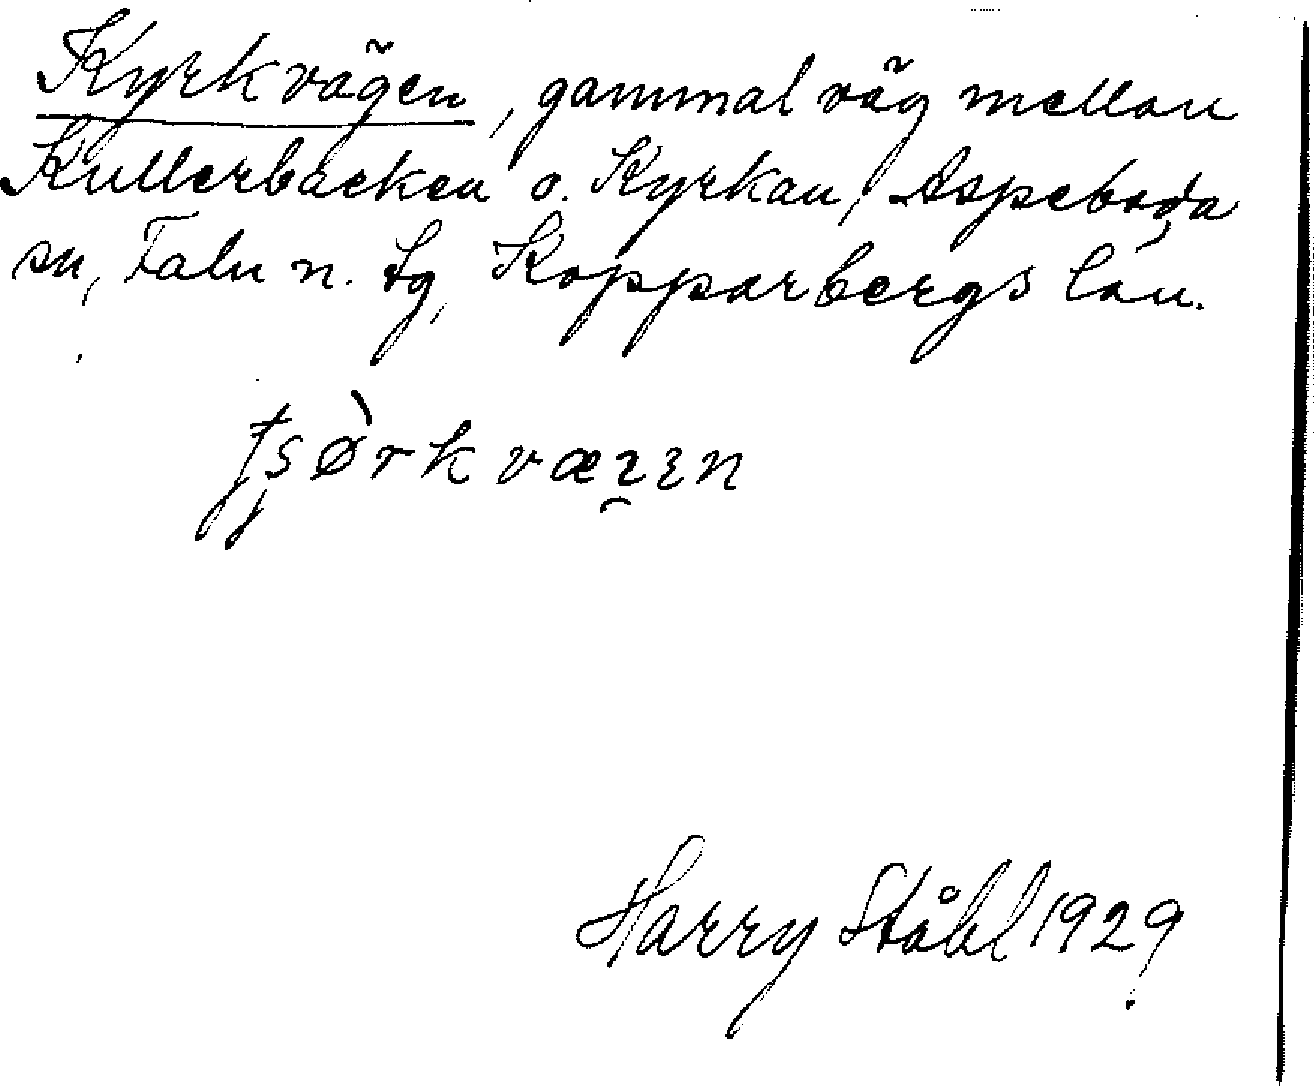 Kyrkvägen, gammal väg mellan
Kullerbacken o. Kyrkan, Aspeboda
sn, Falu n. tg, Kopparbergs län.
Harry Ståhl 1929